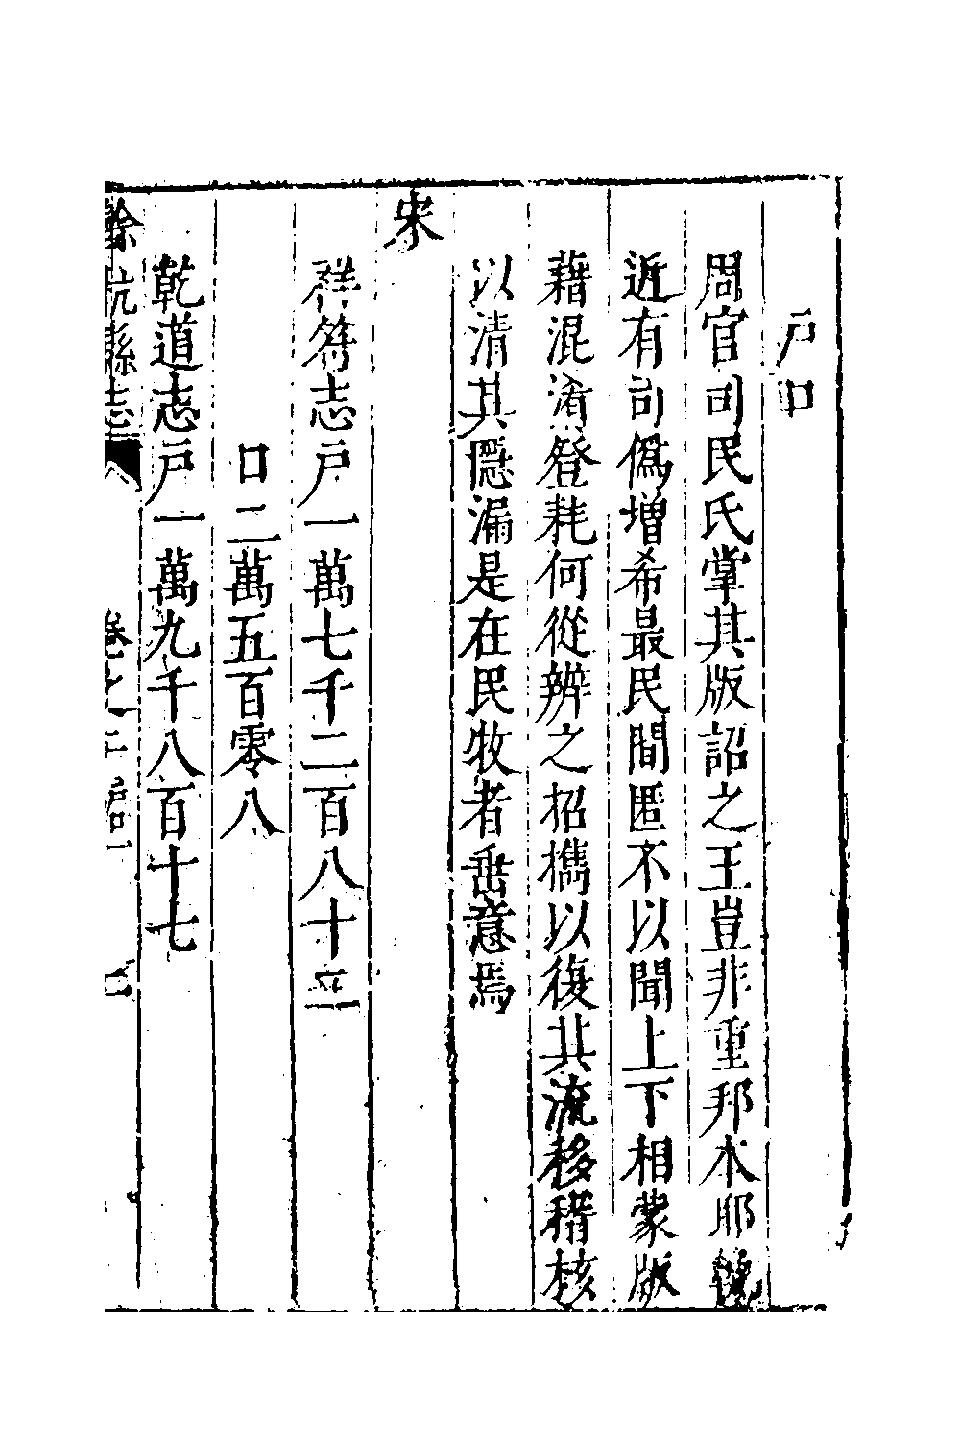 戶口
周官司民氏掌其版詔之王豈非重邦本耶
近有司僞增希最民間匿不以聞上下相蒙版
藉混淆登耗何從辨之招擕以復其流移稽核
以清其隱漏是在民牧者垂意焉
宋
祥符志戶一萬七千二百八十
口二萬五百零八
乾道志戶一萬九千八百十七
餘杭縣志 卷之